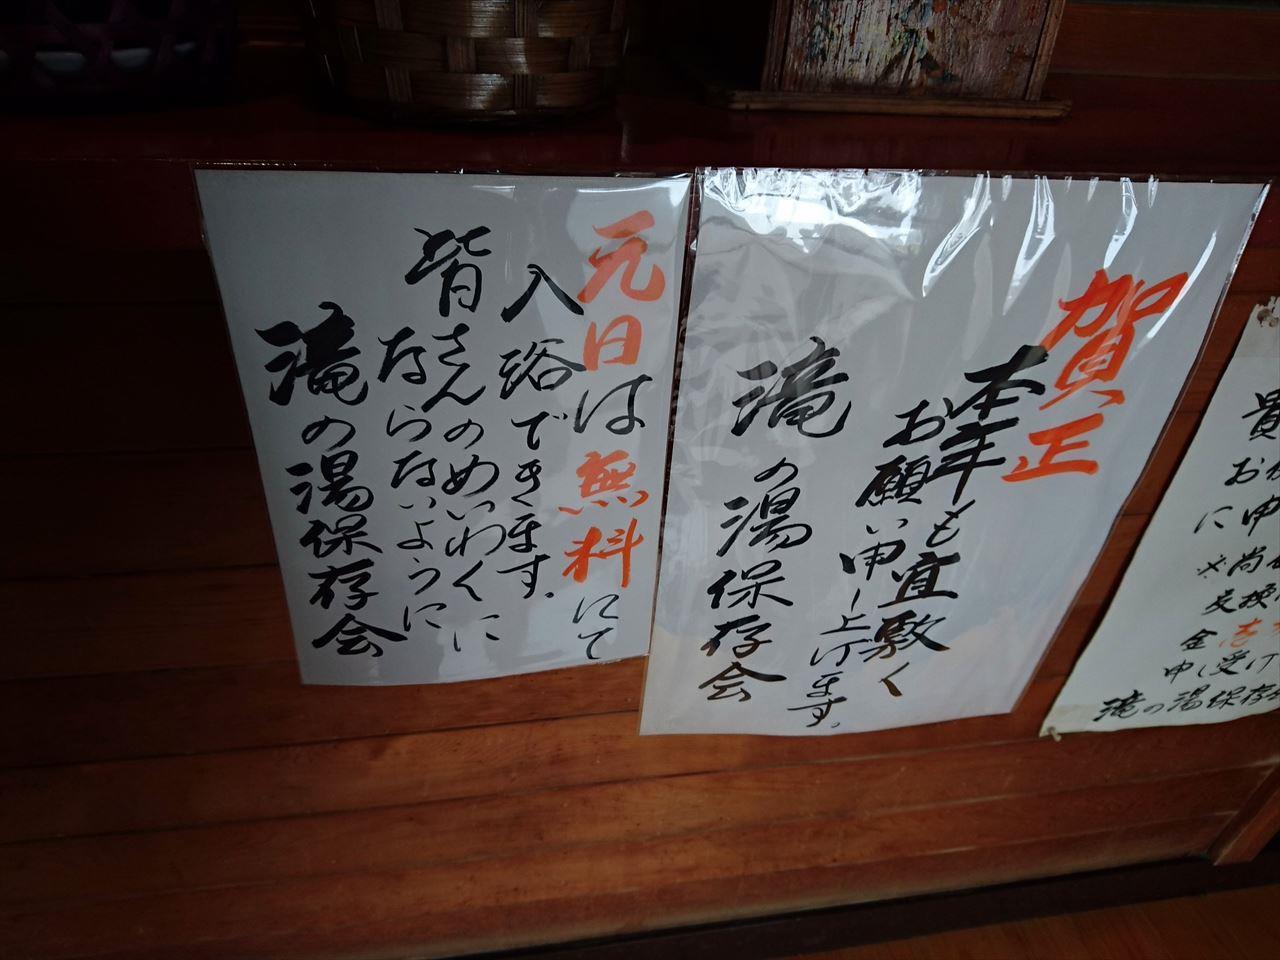 賀正
本年も宜敷く
お願い申し上げます。
滝の湯保存会
元日は無料にて
入浴できます。
皆さんのめいわくに
ならないように
滝の湯保存会
貴
に申
※尚
交換
金壱
申し受け
滝の湯保存